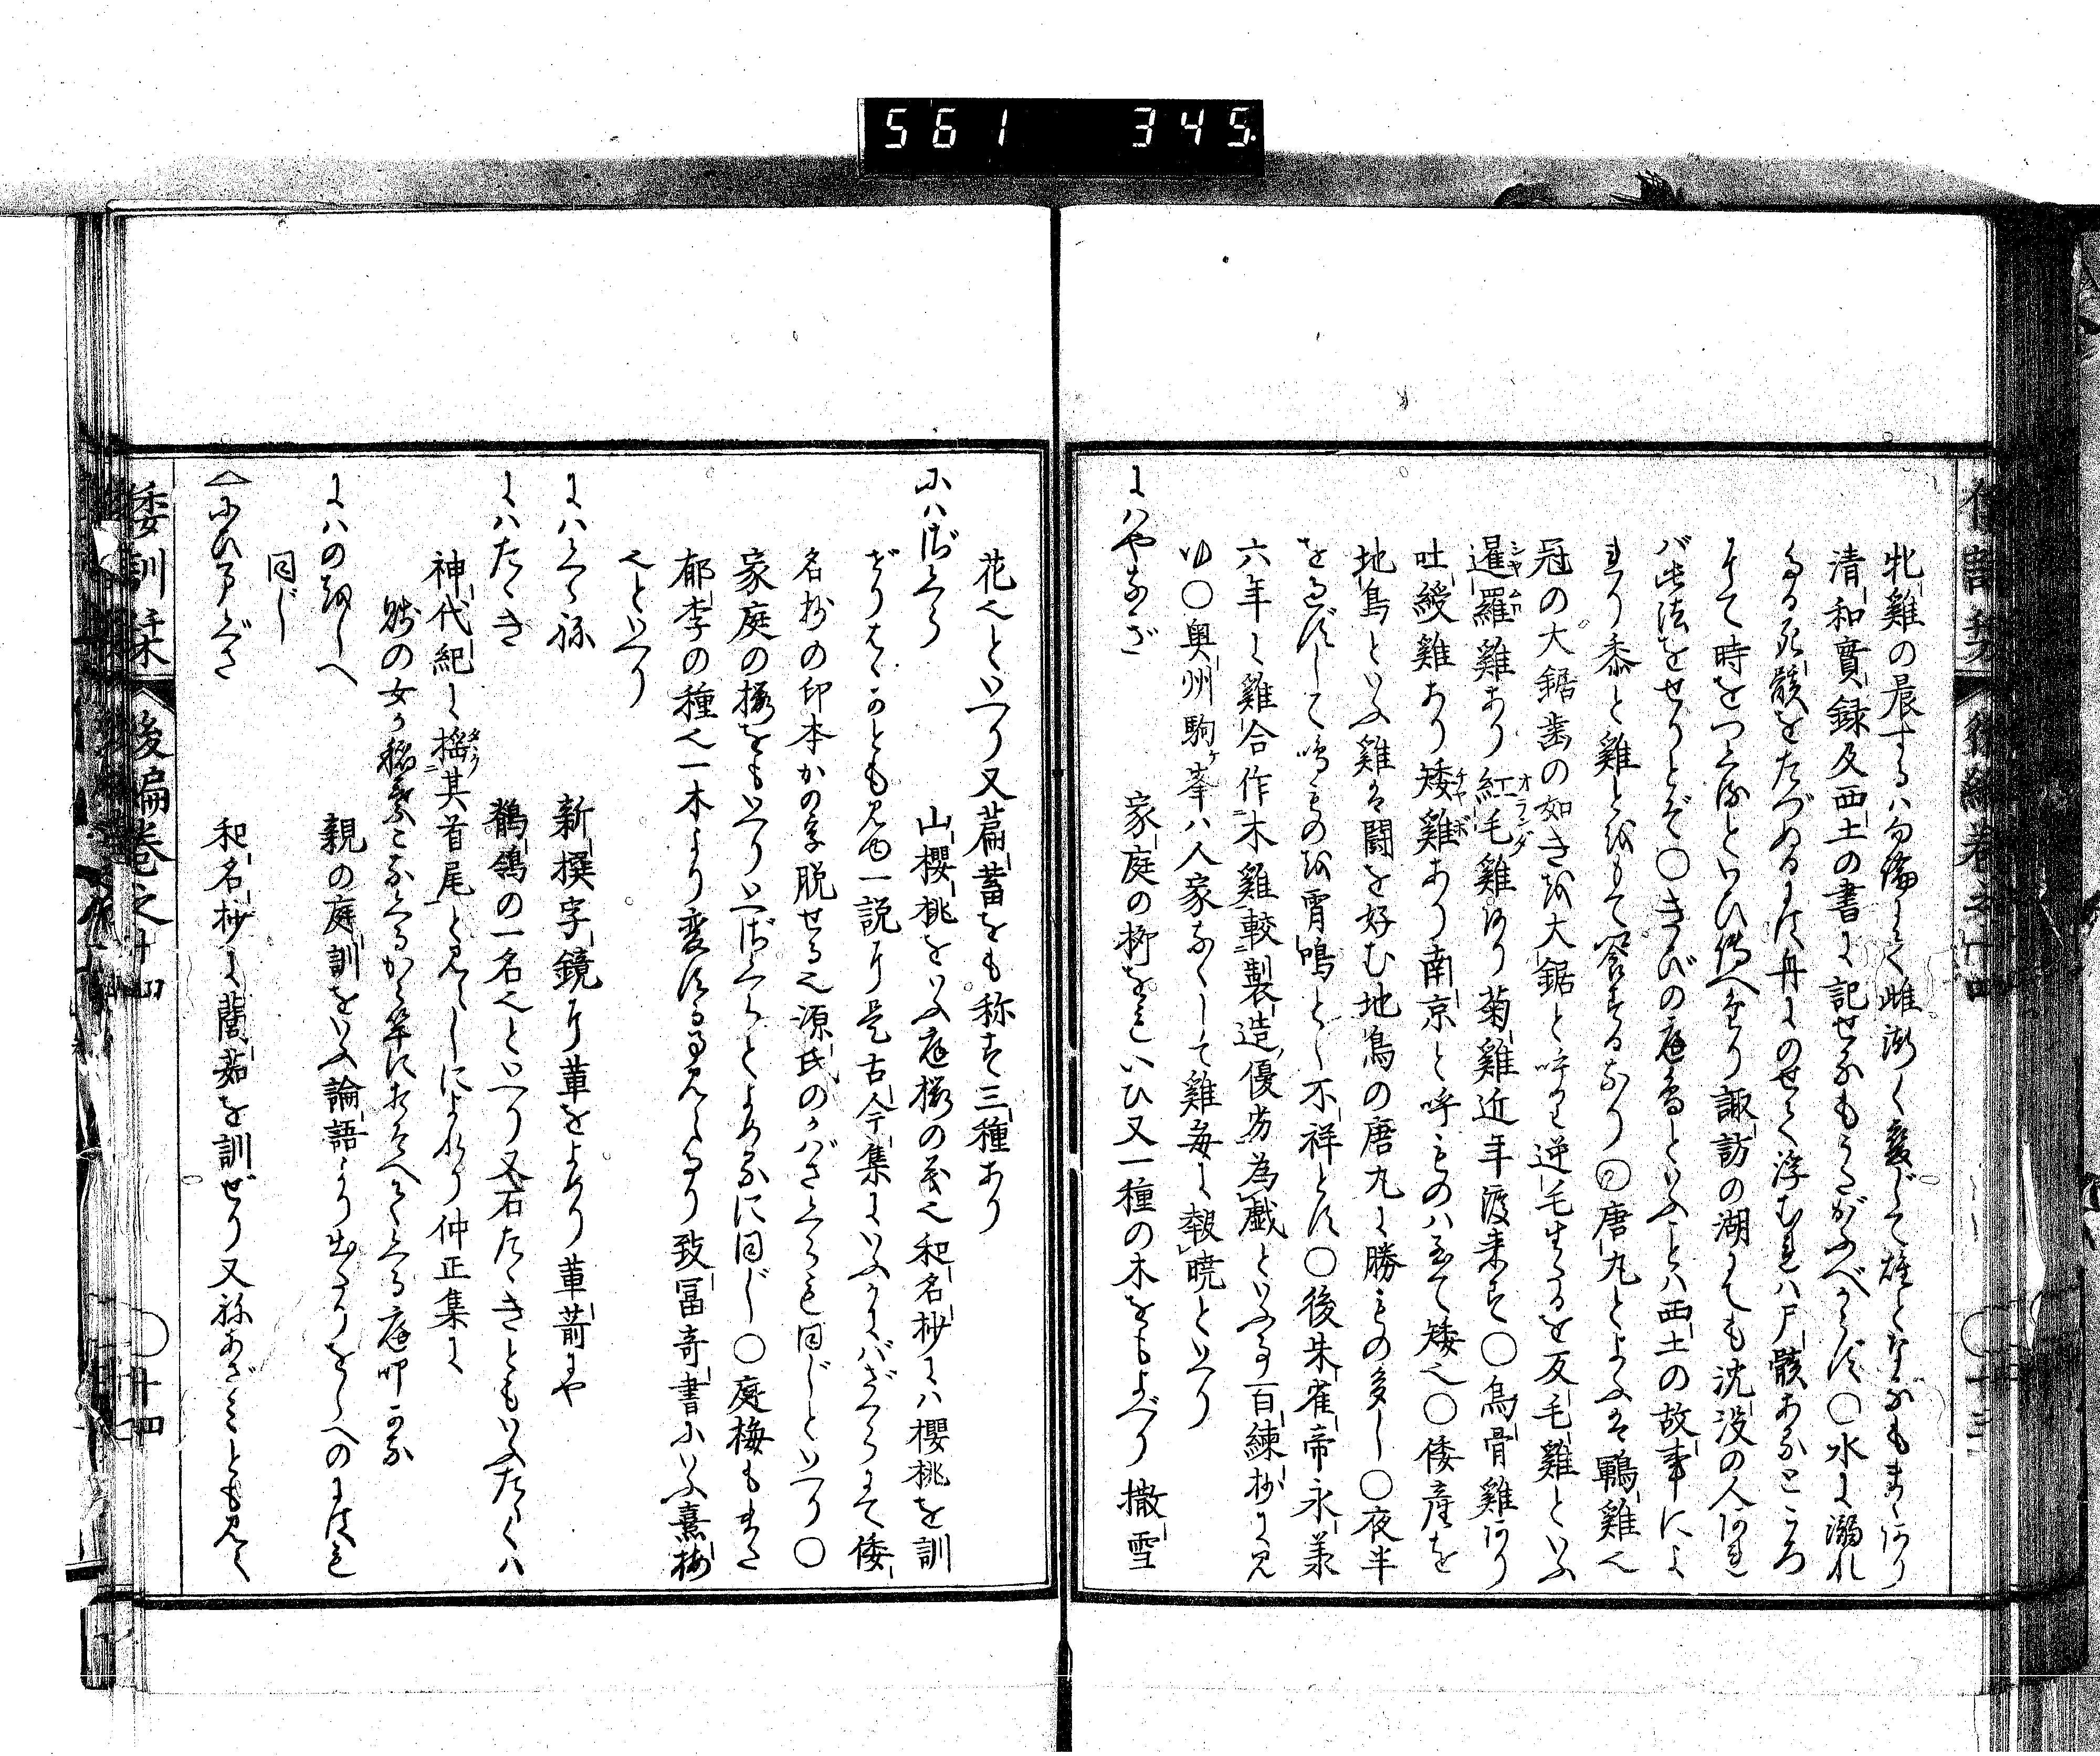 561 345
牝雞の晨するハ勿論にて雌漸く變じて雄となれるもまゝあり
清和實録及西土の書に記せるもうたがふべからず〇水に溺れ
たる死骸をたづぬるには舟にのせて浮むれハ尸骸あるところ
にて時をつくるといひ傳へたり諏訪の湖にても沈没の人あれ
バ此法をせりとぞ〇きびの庭鳥といふことハ西土の故事によ
れり黍と雞とをもて饗するなり〇唐丸とよふは鶤雞也
冠の大鋸歯の如きを大鋸と呼り逆毛生るを反毛雞といふ
暹羅雞あり紅毛雞あり菊雞近年渡来す〇烏骨雞あり
吐綬雞あり矮雞あり南京と呼ものハ至て矮也〇倭産を
地鳥といふ雞は闘を好む地鳥の唐丸に勝もの多し〇夜半
を過ずして鳴ものを宵鳴とし不祥とす〇後朱雀帝永義
六年に雞合作木雞較製造優劣為戲といふ事百練抄に見
ゆ〇奥州駒ヶ峯ハ人家なくして雞毎に報暁といへり
にハやなぎ 家庭の柳をもいひ又一種の木をもよべり撒雪
花也といへり又萹蓄をも称す三種あり
にハざくら 山櫻桃をいふ庭櫻の義也和名抄にハ櫻桃を訓
ぜりはゝかとも見ゆ一説に是古今集にいふかにバざくらにて倭
名抄の印本かの字脱せる也源氏のかバざくらも同じといへり〇
家庭の櫻をもいへりいへざくらとよめるに同じ〇庭梅もまた
郁李の種也一木より変する事見えたり致冨奇書にいふ熹梅
也といへり
にハくゝ祢 新撰字鏡に葷をよめり葷葥にや
にハたゝき 鶺鴒の一名也といへり又石たゝきともいふたゝくハ
神代紀に搖其首尾と見えしによれり仲正集に
賤の女か稲系こなくるからさにおそへてくる庭叩かな
にハのをしへ 親の庭訓をいふ論語より出たりをしへのにはも
同じ
〈にひまくさ 和名抄に䕡茹を訓ぜり又祢あざミとも見え
倭訓栞 後編巻之十四 〇十四